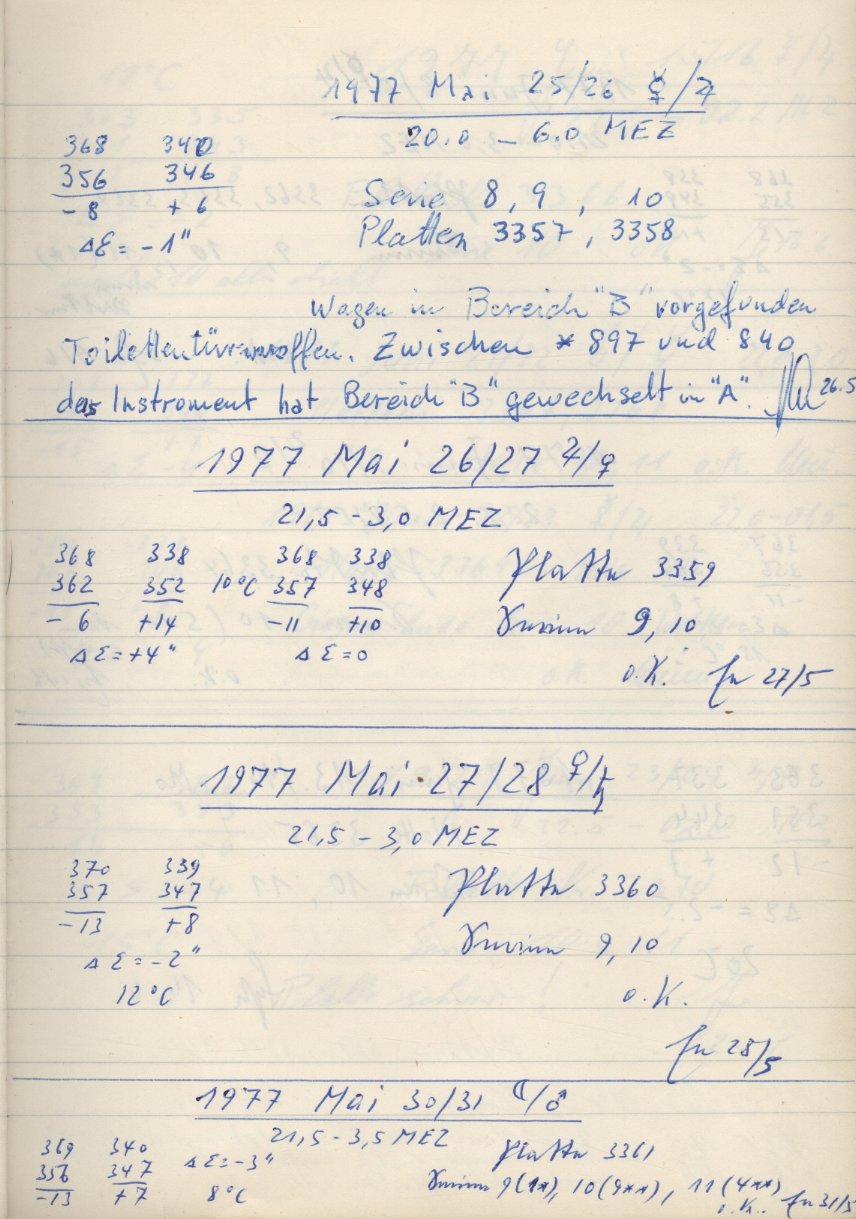 1977 Mai 25/26 ☿/♃
20.0 – 6.0 MEZ
368 340
356 346
-8 +6
ΔƐ = -1"
Serie 8, 9, 10
Platten 3357, 3358
Wagen in Bereich "B" vorgefunden
Toilettentür war offen. Zwischen * 897 und 840
das Instroment hat Bereich "B" gewechselt in "A". 26.5
1977 Mai 26/27 ♃/♀
21,5 - 3,0 MEZ
368 338 368 338
362 352 10°C 357 348
-6 +14 -11 +10
ΔƐ = +4" ΔƐ = 0
Platte 3359
Serien 9, 10
o.K. 27/5
1977 Mai 27/28 ♀/♄
21,5 - 3,0 MEZ
370 339
357 347
-13 +8
ΔƐ = -2"
12°C
Platte 3360
Serien 9, 10
o.K.
28/5
1977 Mai 30/31 ☾/♂
21,5 - 3,5 MEZ
369 340 ΔƐ = -3"
356 347
-13 +7 8°C
Platte 3361
Serien 9(1*), 10(9**), 11(4**)
o.K. 31/5